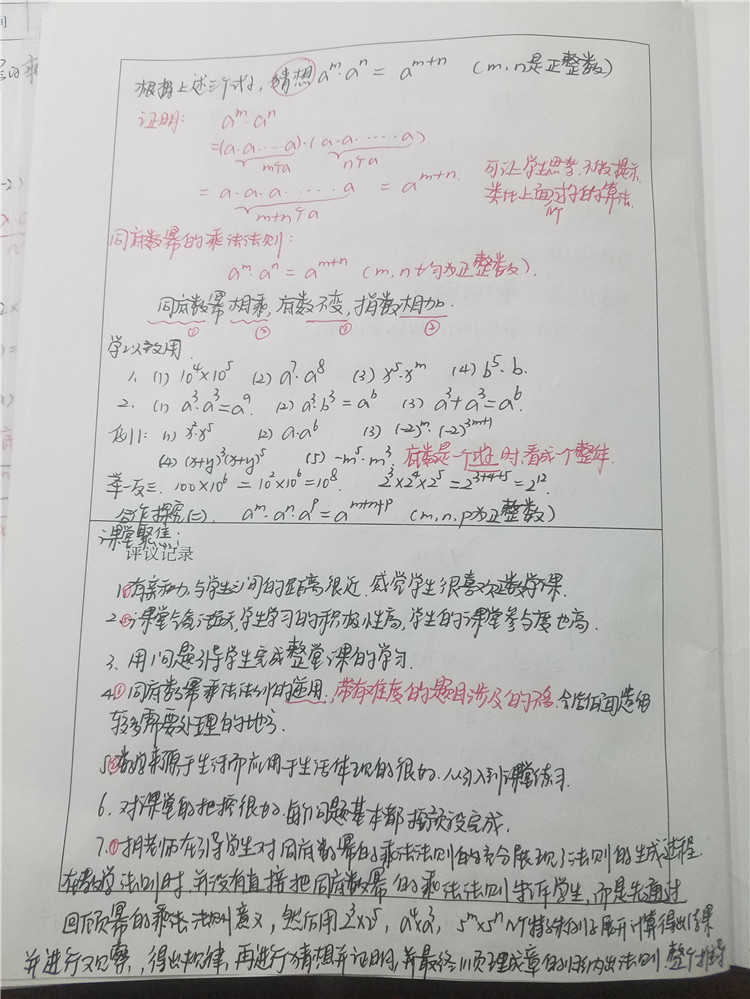 间
根据上述三个式子,猜想 aᵐ·aⁿ = aᵐ⁺ⁿ (m,n是正整数)
证明: aᵐ·aⁿ
=(a·a·…·a)·(a·a·……·a)
m个a n个a
= a·a·a·……·a = aᵐ⁺ⁿ.
m+n个a
可让学生思考,不做提示
类比上面的算法.
同底数幂的乘法法则:
aᵐ·aⁿ = aᵐ⁺ⁿ (m,n均为正整数).
同底数幂相乘,底数不变,指数相加.
① ② ① ②
学以致用
1. (1) 10⁴×10⁵ (2) a⁷·a⁸ (3) x⁵·xᵐ (4) b⁵·b.
2. (1) a³·a³=a⁹. (2) a³·b³=a⁶ (3) a³+a³=a⁶.
例1: (1) x²·x⁵ (2) a·a⁶ (3) (-2)ᵐ·(-2)³ᵐ⁺¹
(4) (x+y)³(x+y)⁵ (5) -m⁵·m³. 底数是一个式子时,看成一个整体.
举一反三. 100×10⁶ = 10²×10⁶ = 10⁸. 2³×2⁴×2⁵ = 2³⁺⁴⁺⁵ = 2¹².
合作探究(二). aᵐ·aⁿ·aᵖ = aᵐ⁺ⁿ⁺ᵖ (m,n,p为正整数)
课堂聚焦:
评议记录
1. 有亲和力,与学生之间的距离很近,感觉学生很喜欢上数学课.
2. 课堂气氛活跃,学生学习的积极性高,学生的课堂参与度也高.
3. 用问题引导学生完成整堂课的学习.
4.① 同底数幂乘法法则的逆用,带有难度的题目涉及的不多.
较多需要处理的地方.
5. 数学来源于生活而应用于生活体现的很好.从引入到课堂练习.
6. 对课堂的把控很好.每个问题基本都按预设完成.
7.① 老师在引导学生对同底数幂的乘法法则的充分展现了法则的生成过程.
在教学法则时,并没有直接把同底数幂的乘法法则告诉学生,而是先通过
回顾幂的乘法法则意义,然后用2³×2⁵, a⁴×a³, 5ᵐ×5ⁿ 特殊例子展开计算得出结果
并进行观察,得出规律,再进行猜想并证明,并最终顺理成章的归纳出法则.整个推导